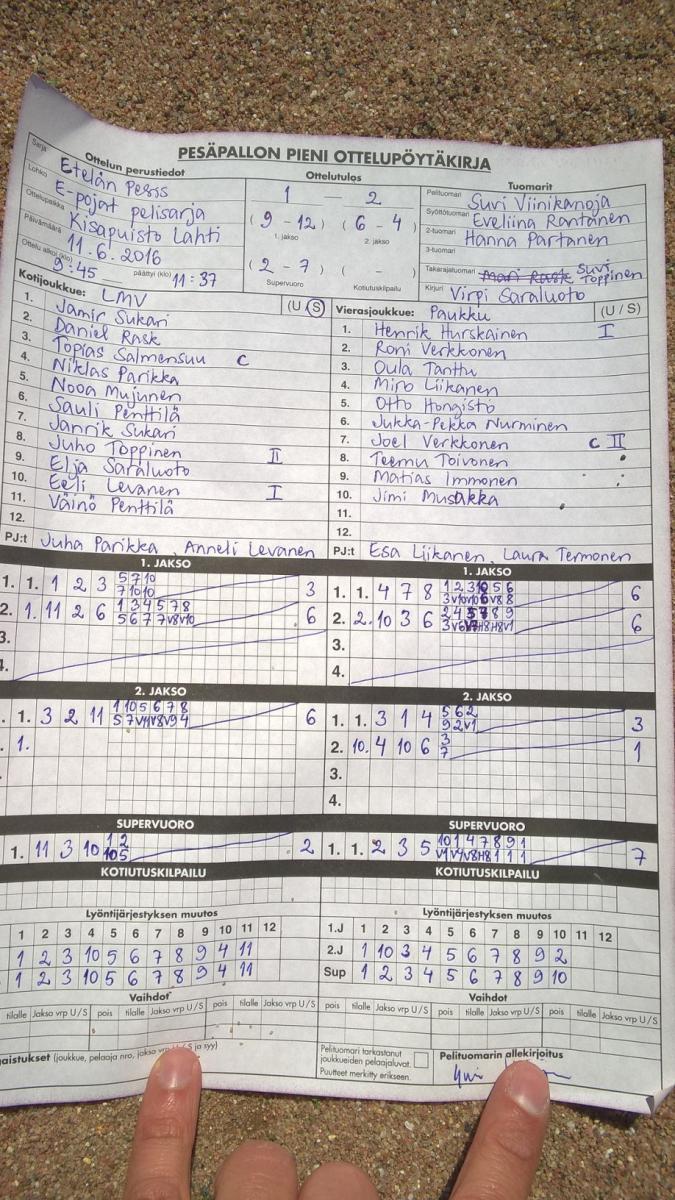 PESÄPALLON PIENI OTTELUPÖYTÄKIRJA
Ottelun perustiedot
Sarja Etelän Pesis
Lohko E-pojat pelisarja
Ottelupaikka Kisapuisto Lahti
Päivämäärä 11.6.2016
Ottelu alkoi (klo) 9:45 päättyi (klo) 11:37
Ottelutulos
1 - 2
(9 - 12) (6 - 4)
1. jakso 2. jakso
(2 - 7) ( - )
Supervuoro Kotiutuskilpailu
Tuomarit
Pelituomari Suvi Viinikanoja
Syöttötuomari Eveliina Rantanen
2-tuomari Hanna Partanen
3-tuomari
Takarajatuomari Mari Rask Suvi Toppinen
Kirjuri Virpi Saraluoto
Kotijoukkue: LMV (U/S)
1. Jamir Sukari
2. Daniel Rask
3. Topias Salmensuu C
4. Niklas Parikka
5. Nooa Mujunen
6. Sauli Penttilä
7. Janrik Sukari
8. Juho Toppinen II
9. Elja Saraluoto
10. Eeli Levanen I
11. Väinö Penttilä
12.
PJ:t Juha Parikka, Anneli Levanen
Vierasjoukkue: Paukku (U/S)
1. Henrik Hurskainen I
2. Roni Verkkonen
3. Oula Tanttu
4. Miro Liikanen
5. Otto Hongisto
6. Jukka-Pekka Nurminen
7. Joel Verkkonen C II
8. Teemu Toivonen
9. Matias Immonen
10. Jimi Musakka
11.
12.
PJ:t Esa Liikanen, Laura Termonen
1. JAKSO
1. 1. 1 2 3 5 7 10 3
7 10 10
2. 1. 11 2 6 1 3 4 5 7 8 6
5 6 7 7 V8 V10
3.
4.
1. JAKSO
1. 1. 4 7 8 1 2 3 10 5 6 6
2. 2. 10 3 6 6
3.
4.
2. JAKSO
1. 3 2 11 1 10 5 6 7 8 6
5 7 V11 V8 V9 4
1.
2. JAKSO
1. 1. 3 1 4 5 6 2 3
9 2 V1
2. 10. 4 10 6 3 1
7
3.
4.
SUPERVUORO
1. 11 3 10 1 2 2
10 5
SUPERVUORO
1. 1. 2 3 5 10 1 4 7 8 9 1 7
V1 V4 V8 H8 1 1 1
KOTIUTUSKILPAILU
KOTIUTUSKILPAILU
Lyöntijärjestyksen muutos
1 2 3 4 5 6 7 8 9 10 11 12
1 2 3 10 5 6 7 8 9 4 11
1 2 3 10 5 6 7 8 9 4 11
Lyöntijärjestyksen muutos
1.J 1 2 3 4 5 6 7 8 9 10 11 12
2.J 1 10 3 4 5 6 7 8 9 2
Sup 1 2 3 4 5 6 7 8 9 10
Vaihdot
tilalle Jakso vrp U/S pois tilalle Jakso vrp U/S pois tilalle Jakso vrp U/S
Vaihdot
pois tilalle Jakso vrp U/S pois tilalle Jakso vrp U/S
gaistukset (joukkue, pelaaja nro, jakso vrp U/S ja syy)
Pelituomari tarkastanut
joukkueiden pelaajaluvat.
Puutteet merkitty erikseen.
Pelituomarin allekirjoitus